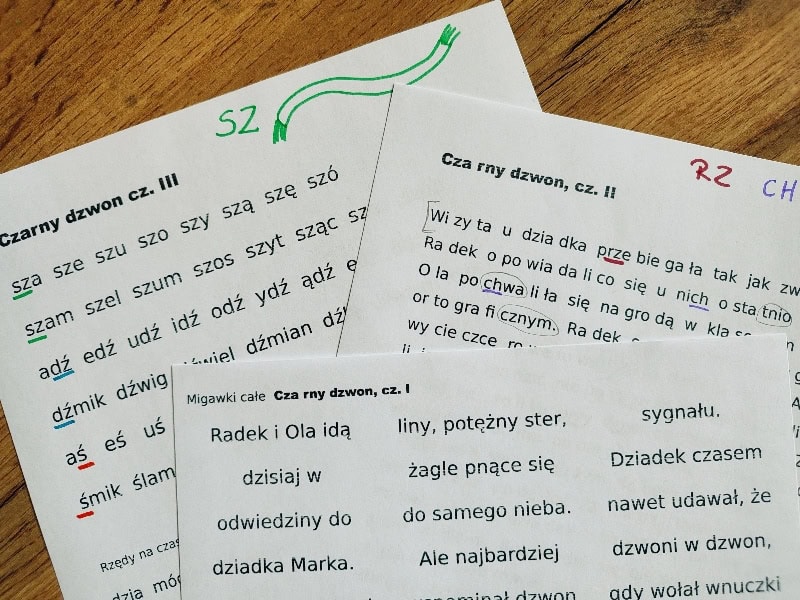 SZ
Czarny dzwon cz. III
sza sze szu szo szy szą szę szó
szam szel szum szos szyt sząc
adź edź udź idź odź ydź ądź
dźmik dźwig dźmian
aś eś uś
śmik ślam
Rzędy na
dzia
RZ CH
Cza rny dzwon, cz. II
Wi zy ta u dzia dka prze bie ga ła tak jak
Ra dek o po wia da li co się u nich o sta tnio
O la po chwa li ła się na gro dą w kla
or to gra fi cznym. Ra dek
wy cie czce
Migawki całe Cza rny dzwon, cz. I
Radek i Ola idą
dzisiaj w
odwiedziny do
dziadka Marka.
liny, potężny ster,
żagle pnące się
do samego nieba.
Ale najbardziej
dzwon
sygnału.
Dziadek czasem
nawet udawał, że
dzwoni w dzwon,
gdy wołał wnuczki